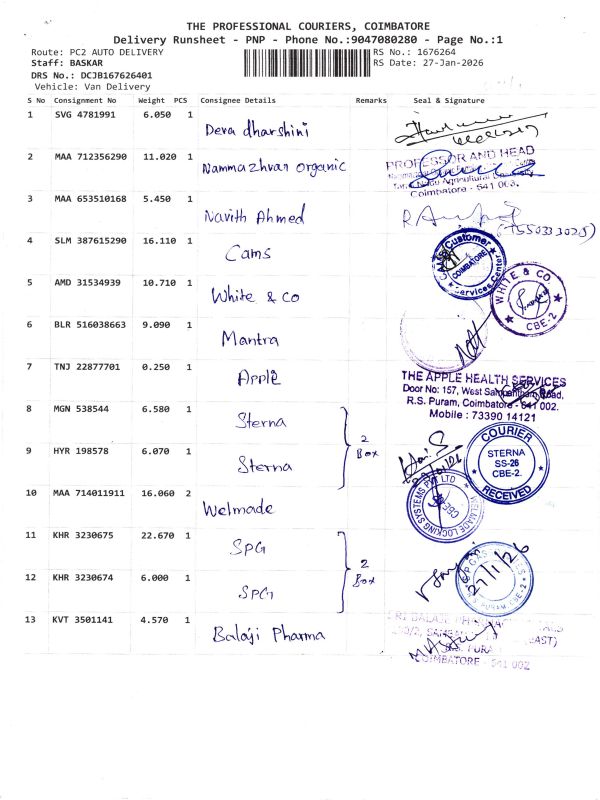 THE PROFESSIONAL COURIERS, COIMBATORE
Delivery Runsheet - PNP - Phone No.:9047080280 - Page No.:1
Route: PC2 AUTO DELIVERY
RS No.: 1676264
Staff: BASKAR
RS Date: 27-Jan-2026
DRS No.: DCJB167626401
Vehicle: Van Delivery
S No Consignment No Weight PCS Consignee Details Remarks Seal & Signature
1 SVG 4781991 6.050 1 Deva dharshini
2 MAA 712356290 11.020 1 Nammazhvar organic
PROFESSOR AND HEAD
Tamil Nadu Agricultural University
Coimbatore - 641 003.
3 MAA 653510168 5.450 1 Navith Ahmed
4 SLM 387615290 16.110 1 Cams
CAMS Customer Services Center
COIMBATORE
5 AMD 31534939 10.710 1 White & Co
WHITE & CO.
CBE-2
6 BLR 516038663 9.090 1 Mantra
7 TNJ 22877701 0.250 1 Apple
THE APPLE HEALTH SERVICES
Door No: 157, West Sambantham Road,
R.S. Puram, Coimbatore - 641 002.
Mobile : 73390 14121
8 MGN 538544 6.580 1 Sterna
2 Box
9 HYR 198578 6.070 1 Sterna
COURIER
STERNA
SS-26
CBE-2.
RECEIVED
10 MAA 714011911 16.060 2 Welmade
WELMADE LOCKING SYSTEMS PVT LTD
11 KHR 3230675 22.670 1 SPG
2 Box
12 KHR 3230674 6.000 1 SPG
27/1/26
R.S. PURAM, CBE-2
13 KVT 3501141 4.570 1 Balaji Pharma
COIMBATORE - 641 002